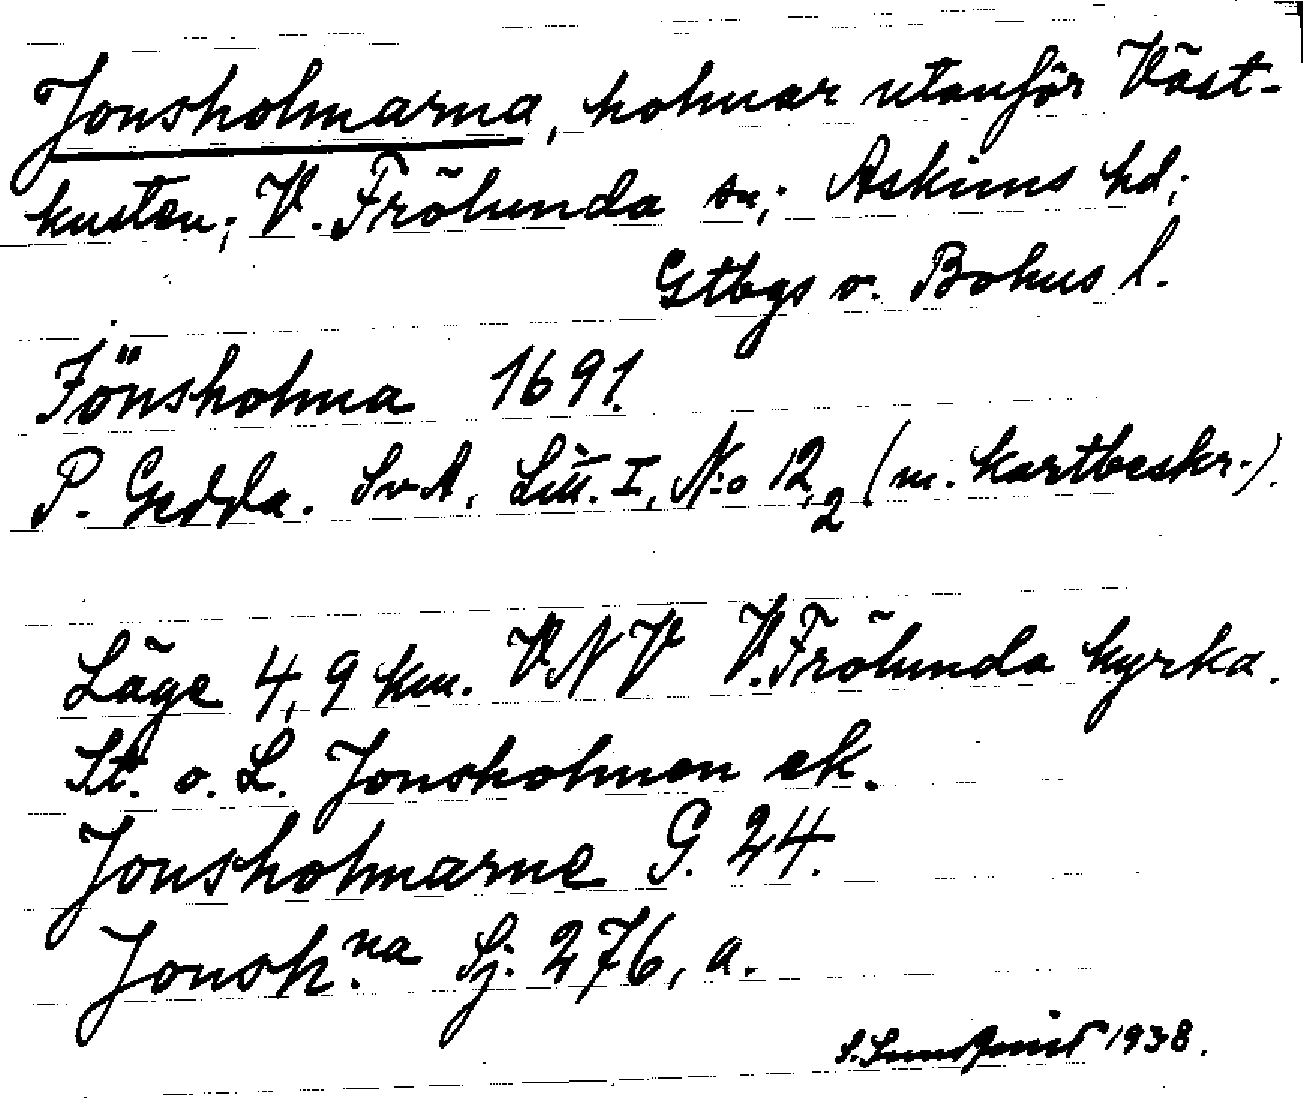 Jonsholmarna, holmar utanför Väst-
kusten; V. Frölunda sn; Askims hd;
Gtbgs o. Bohus l.
Jönsholma 1691.
P. Gedda. SvA, Litt. I, N:o 12,2 (m. kartbeskr.).
Läge 4,9 km. VNV V. Frölunda kyrka.
St. o. L. Jonsholmen ek.
Jonsholmarne G. 24.
Jonsh.na Sj. 276, a.
S. Sundqvist 1938.